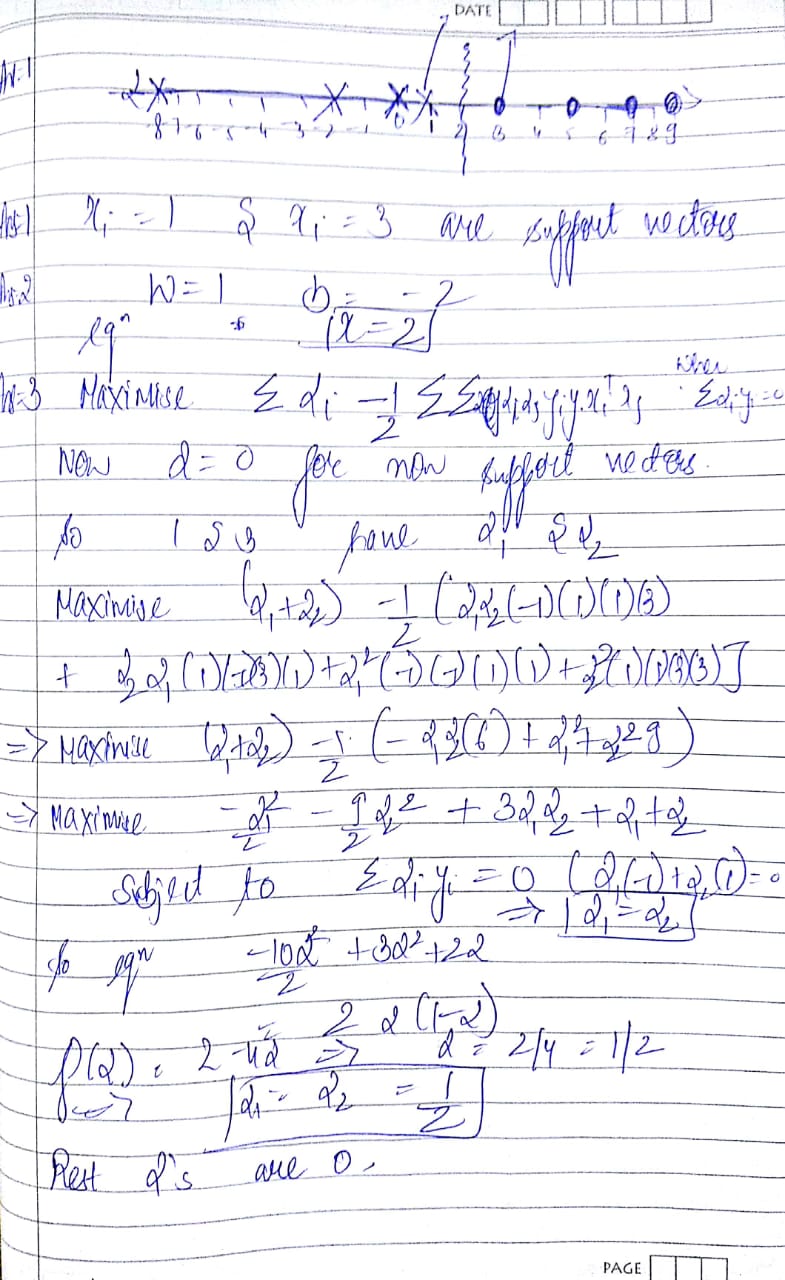 DATE
An.1
-8 -7 -6 -5 -4 -3 -2 -1 0 1 2 3 4 5 6 7 8 9
Ans.1 xᵢ = 1 & xᵢ = 3 are support vectors
Ans.2 W = 1 b = -2
eqⁿ x = 2
Maximise Σ αᵢ - 1/2 Σ Σ αᵢαⱼ yᵢyⱼ xᵢᵀxⱼ when Σαᵢyᵢ = 0
Now α = 0 for non support vectors.
So 1 & 3 have α₁ & α₂
Maximise (α₁+α₂) - 1/2 (α₁α₂(-1)(1)(1)(3)
+ α₂α₁(1)(-1)(3)(1) + α₁²(-1)(-1)(1)(1) + α₂²(1)(1)(3)(3)]
=> Maximise (α₁+α₂) - 1/2 (-α₁α₂(6) + α₁² + α₂² 9)
=> Maximise -α₁²/2 - 9/2 α₂² + 3α₁α₂ + α₁ + α₂
Subject to Σ αᵢyᵢ = 0 (α₁(-1)+α₂(1) = 0
=> α₁ = α₂
So eqⁿ -10α²/2 + 3α² + 2α
= 2α(1-α)
f(α) = 2 - 4α => α = 2/4 = 1/2
=> α₁ = α₂ = 1/2
Rest α's are 0.
PAGE